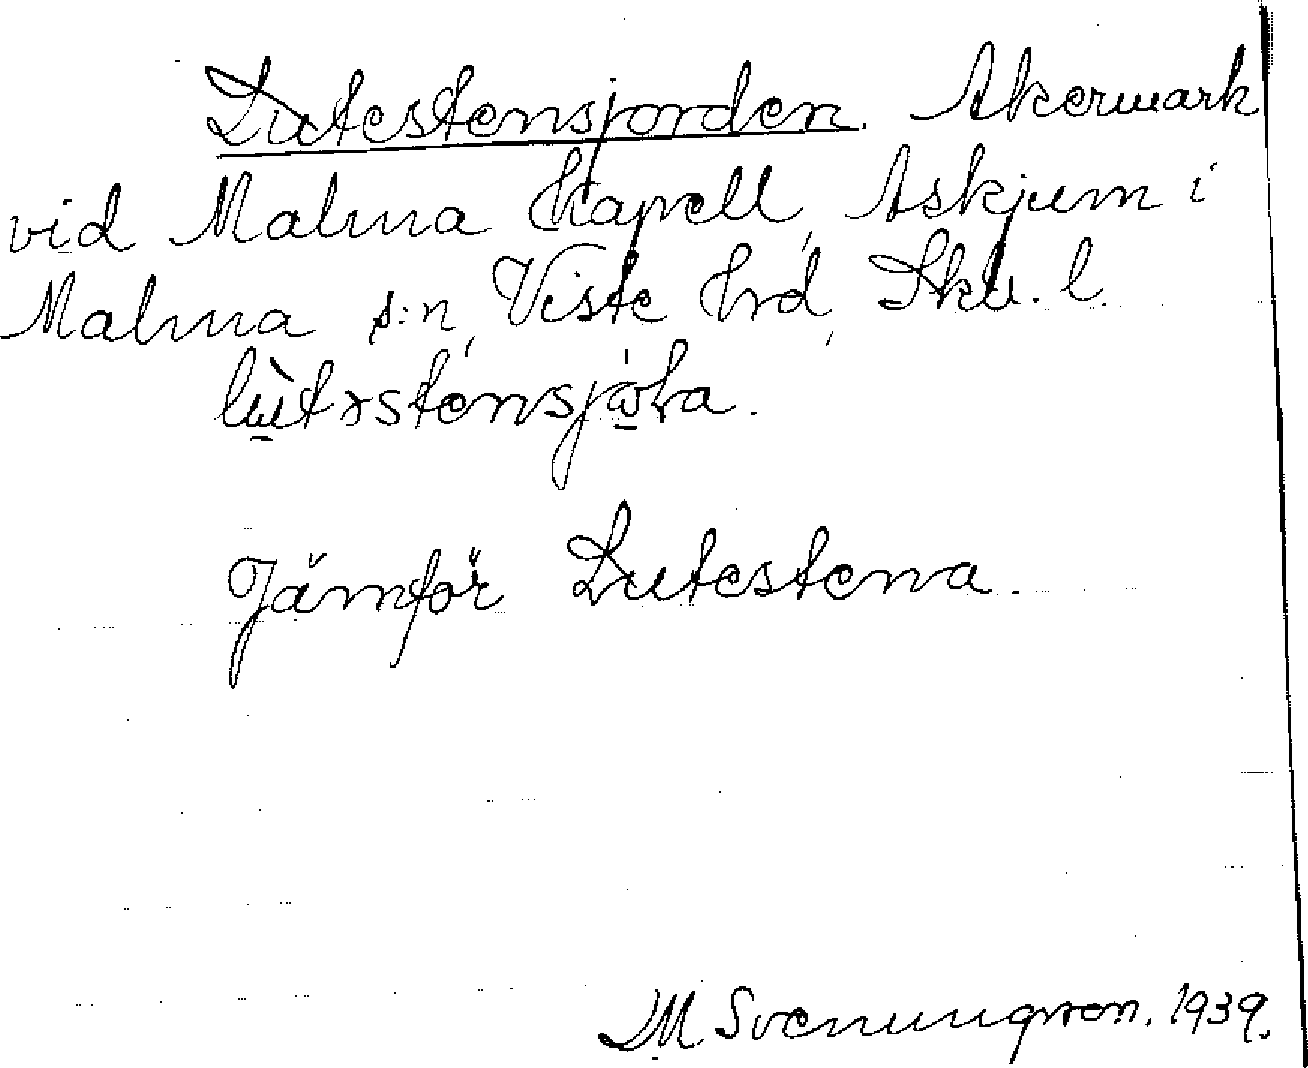 Lutestensjorden. Åkermark
vid Malma Kapell, Askjum i
Malma s:n, Viste hrd, Skb. l.
lùtəstensjωLa.
Jämför Lutestena.
D.M. Svenungsson. 1939.